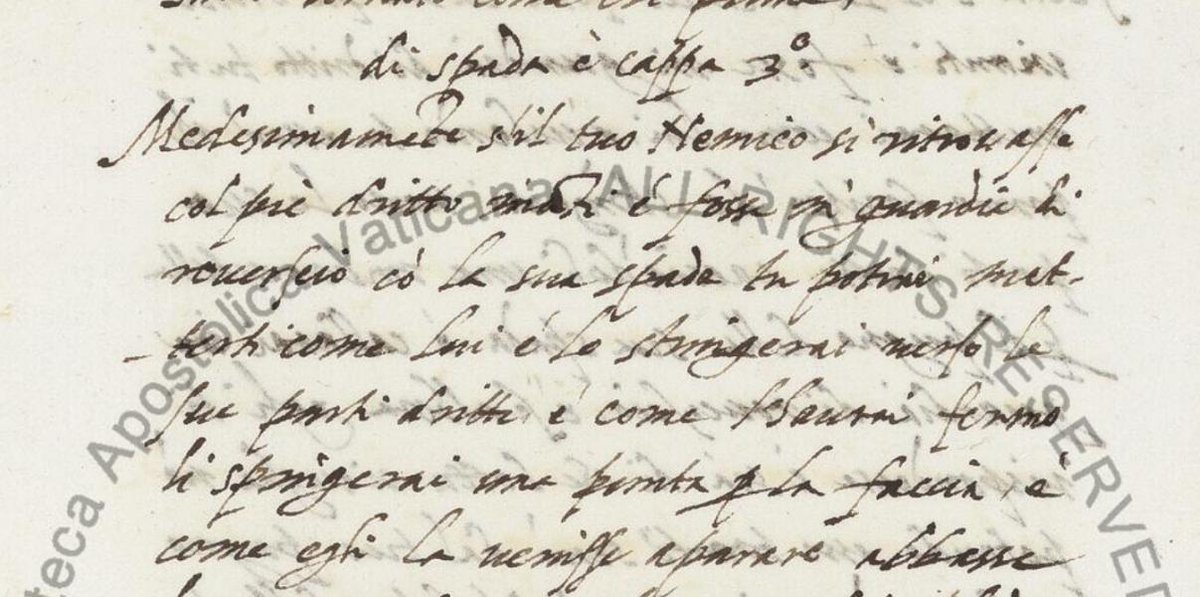 di spada è cappa 3º
Medesimamẽte s'il tuo Nemico si ritrouasse
col piè dritto inãti è fosse in guardia di
rouerscio cõ la sua spada tu potrai met-
terti come lui e lo stringerai uerso le
sue parti dritte, e come l'hauerai fermo
li spingerai una punta ꝑ la faccia, è
come egli la uenisse aparare abbasse
Biblioteca Apostolica Vaticana ALL RIGHTS RESERVED